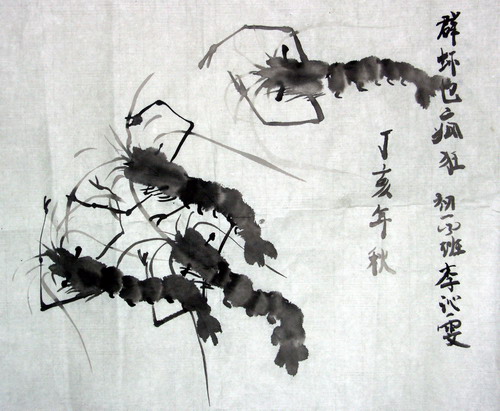 群虾也疯狂 初班李沁雯
丁亥年秋